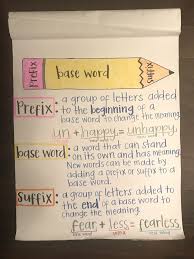 prefix
base word
suffix
Prefix: a group of letters added
to the beginning of a
base word to change the meaning.
un + happy = unhappy
base word: a word that can stand
on its own and has meaning.
New words can be made by
adding a prefix or suffix to a
base word.
Suffix: a group of letters added to
the end of a base word to
change the meaning.
fear + less = fearless